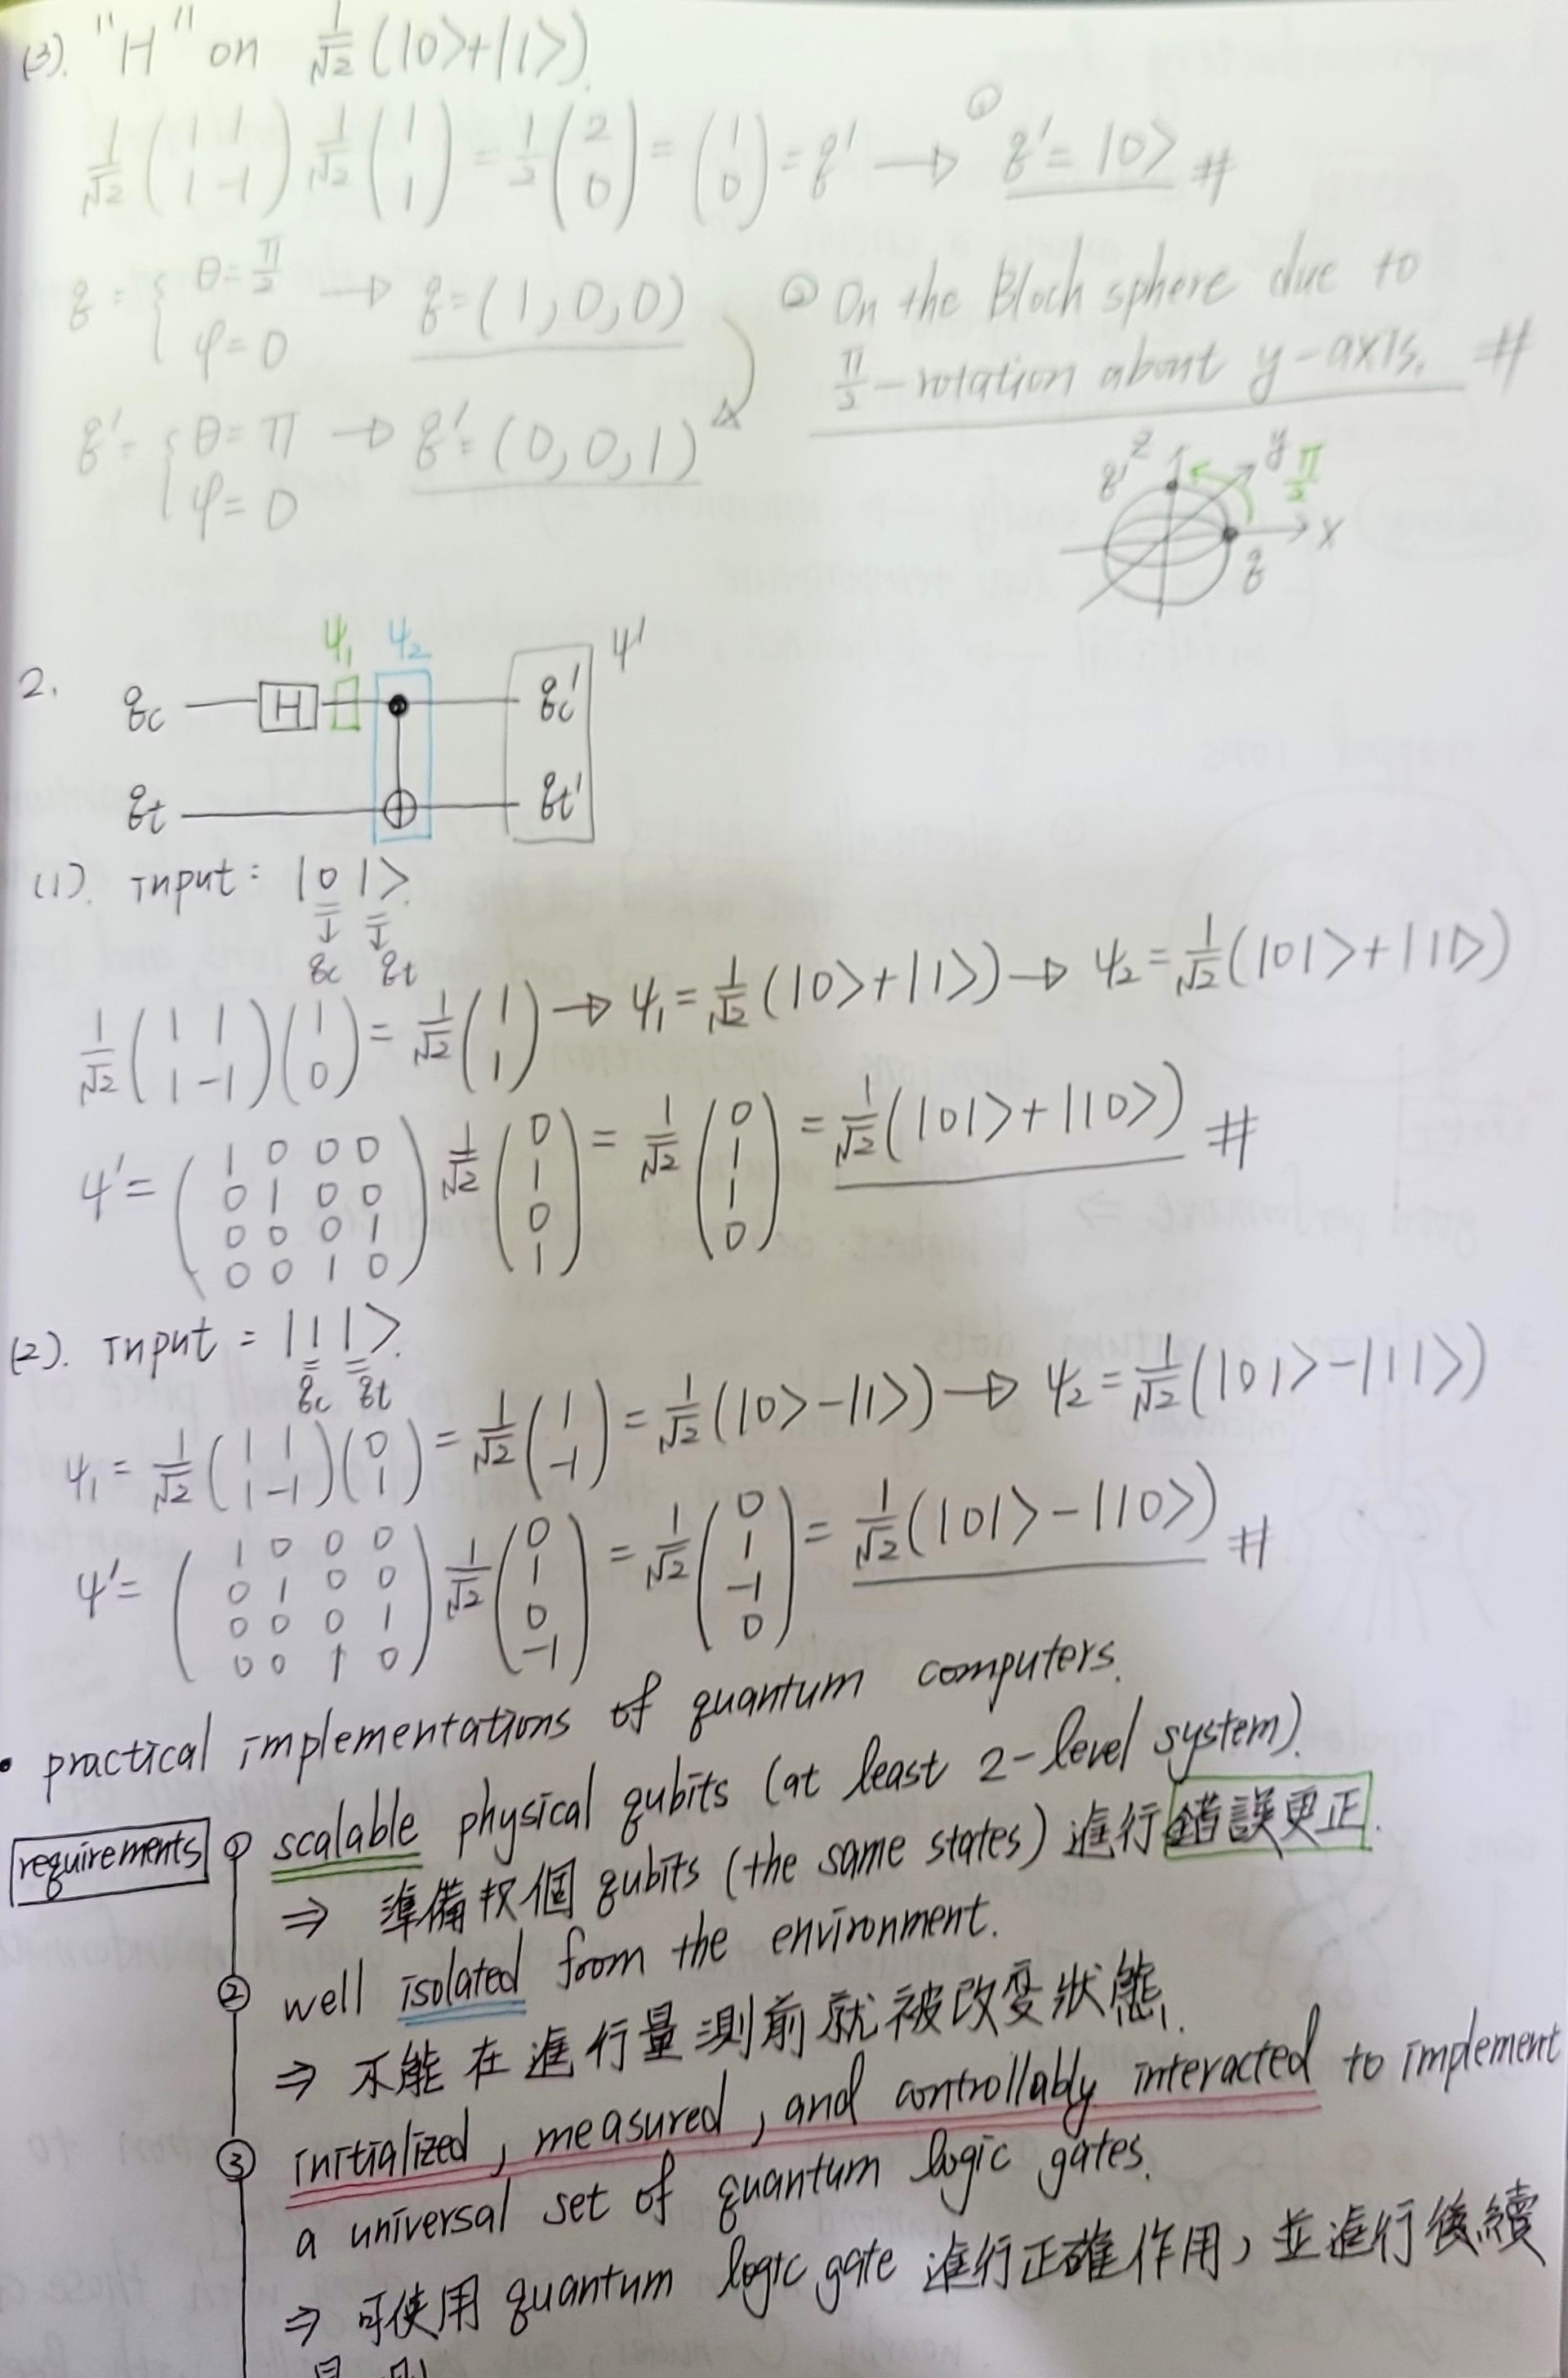 (3). "H" on 1/√2 (|0>+|1>).
1/√2 (1 1 / 1 -1) 1/√2 (1 / 1) = 1/2 (2 / 0) = (1 / 0) = q' → ① q' = |0> #
q = { θ = π/2 / φ = 0 → q = (1, 0, 0)
② On the Bloch sphere due to
π/2 - rotation about y-axis. #
q' = { θ = π / φ = 0 → q' = (0, 0, 1)
z y π/2
q'
x
q
ψ1 ψ2 ψ'
2. qc H qc'
qt qt'
(1). input : |0 1>.
qc qt
1/√2 (1 1 / 1 -1) (1 / 0) = 1/√2 (1 / 1) → ψ1 = 1/√2 (|0>+|1>) → ψ2 = 1/√2 (|01>+|11>)
ψ' = (1 0 0 0 / 0 1 0 0 / 0 0 0 1 / 0 0 1 0) 1/√2 (0 / 1 / 0 / 1) = 1/√2 (0 / 1 / 1 / 0) = 1/√2 (|01>+|10>) #
(2). input = |1 1>.
qc qt
ψ1 = 1/√2 (1 1 / 1 -1) (0 / 1) = 1/√2 (1 / -1) = 1/√2 (|0>-|1>) → ψ2 = 1/√2 (|01>-|11>)
ψ' = (1 0 0 0 / 0 1 0 0 / 0 0 0 1 / 0 0 1 0) 1/√2 (0 / 1 / 0 / -1) = 1/√2 (0 / 1 / -1 / 0) = 1/√2 (|01>-|10>) #
• practical implementations of quantum computers.
requirements ① scalable physical qubits (at least 2-level system).
⇒ 準備 個 qubits (the same states) 進行錯誤更正.
② well isolated from the environment.
⇒ 不能在進行量測前就被改變狀態.
③ initialized, measured, and controllably interacted to implement
a universal set of quantum logic gates.
⇒ 可使用 quantum logic gate 進行正確作用, 並進行後續